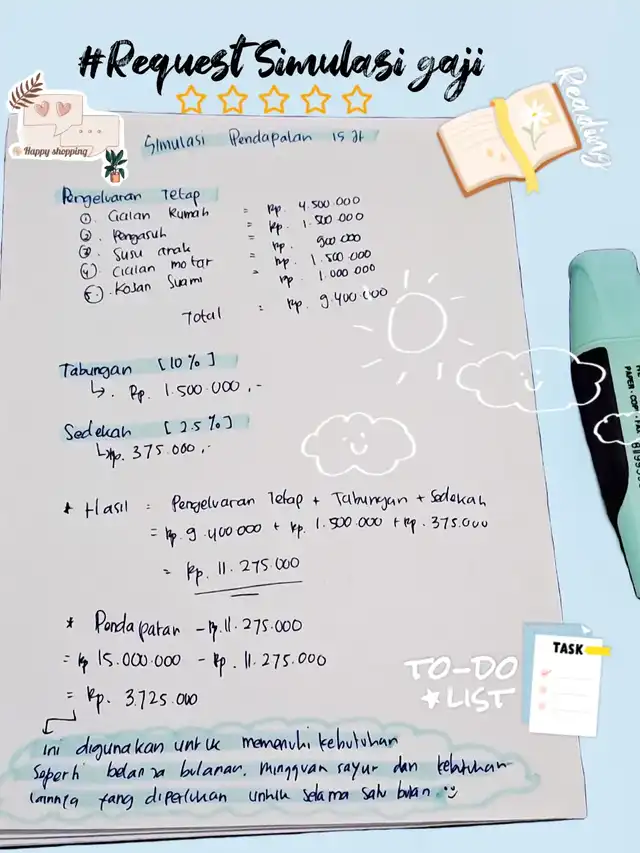 #Request Simulasi gaji
Happy shopping
Reading
Simulasi Pendapatan 15 Jt
Pengeluaran Tetap
1. Cicilan Rumah = Rp. 4.500.000
2. Pengasuh = Rp. 1.500.000
3. Susu anak = Rp. 900.000
4. Cicilan motor = Rp. 1.500.000
5. Kojan Suami = Rp. 1.000.000
Total = Rp. 9.400.000
Tabungan [10%]
↳. Rp. 1.500.000,-
Sedekah [2.5%]
↳Rp. 375.000,-
* Hasil = Pengeluaran Tetap + Tabungan + Sedekah
= Rp. 9.400.000 + Rp. 1.500.000 + Rp. 375.000
= Rp. 11.275.000
* Pendapatan - Rp.11.275.000
= Rp 15.000.000 - Rp. 11.275.000
= Rp. 3.725.000
ini digunakan untuk memenuhi kebutuhan
seperti belanja bulanan, mingguan sayur dan kebutuhan
lainnya yang diperlukan untuk selama satu bulan.
TO-DO
LIST
TASK
PAPER. COPY. FAX